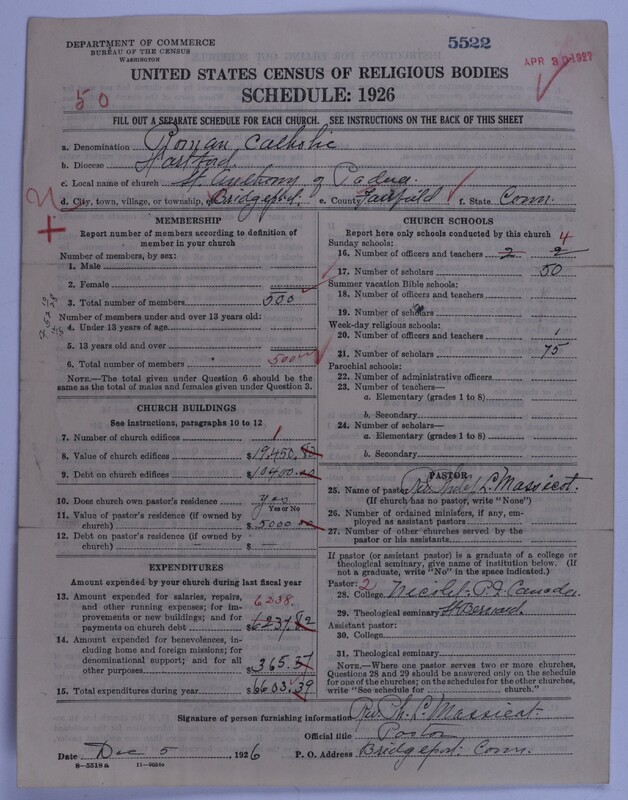 DEPARTMENT OF COMMERCE
BUREAU OF THE CENSUS
WASHINGTON
5522
APR 20 1927
UNITED STATES CENSUS OF RELIGIOUS BODIES
SCHEDULE: 1926
50
FILL OUT A SEPARATE SCHEDULE FOR EACH CHURCH. SEE INSTRUCTIONS ON THE BACK OF THIS SHEET
a. Denomination Roman Catholic
b. Diocese Hartford
c. Local name of church St. Anthony of Padua
d. City, town, village, or township, Bridgeport e. County Fairfield f. State Conn.
MEMBERSHIP
Report number of members according to definition of member in your church
Number of members, by sex:
1. Male
2. Female
3. Total number of members 500
Number of members under and over 13 years old:
4. Under 13 years of age
5. 13 years old and over
6. Total number of members 500
NOTE.—The total given under Question 6 should be the same as the total of males and females given under Question 3.
CHURCH BUILDINGS
See instructions, paragraphs 10 to 12
7. Number of church edifices 1
8. Value of church edifices $19450.
9. Debt on church edifices $10400.00
10. Does church own pastor's residence yes
Yes or No
11. Value of pastor's residence (if owned by church) $5000 00
12. Debt on pastor's residence (if owned by church) $
EXPENDITURES
Amount expended by your church during last fiscal year
13. Amount expended for salaries, repairs, and other running expenses; for improvements or new buildings; and for payments on church debt $6237.82
6238.
14. Amount expended for benevolences, including home and foreign missions; for denominational support; and for all other purposes $365.57
15. Total expenditures during year $6603.39
CHURCH SCHOOLS
Report here only schools conducted by this church
Sunday schools:
4
16. Number of officers and teachers 2 2
17. Number of scholars 50
Summer vacation Bible schools:
18. Number of officers and teachers
19. Number of scholars
Week-day religious schools:
20. Number of officers and teachers 1
21. Number of scholars 75
Parochial schools:
22. Number of administrative officers
23. Number of teachers—
a. Elementary (grades 1 to 8)
b. Secondary
24. Number of scholars—
a. Elementary (grades 1 to 8)
b. Secondary
PASTOR
25. Name of pastor Rev. L. Massicot.
(If church has no pastor, write "None")
26. Number of ordained ministers, if any, employed as assistant pastors
27. Number of other churches served by the pastor or his assistants
If pastor (or assistant pastor) is a graduate of a college or theological seminary, give name of institution below. (If not a graduate, write "No" in the space indicated.)
Pastor: 2
28. College Nicolet P.Q. Canada
29. Theological seminary St Bernard
Assistant pastor:
30. College
31. Theological seminary
NOTE.—Where one pastor serves two or more churches, Questions 28 and 29 should be answered only on the schedule for one of the churches; on the schedules for the other churches, write "See schedule for church."
Signature of person furnishing information Rev. Th. L. Massicot.
Official title Pastor
Date Dec 5, 1926 P. O. Address Bridgeport Conn.
8—5518 a